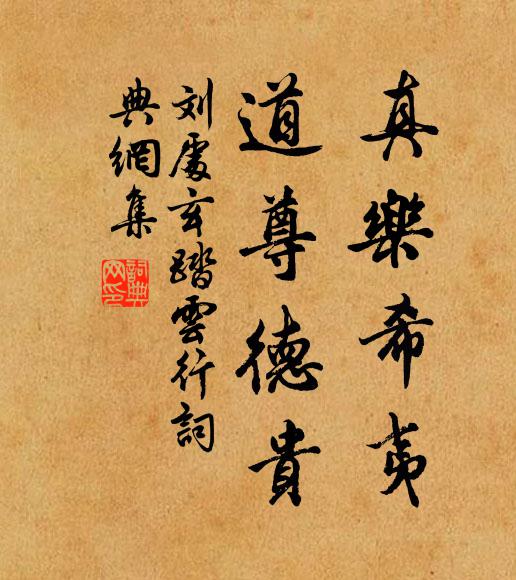 真樂希夷
道尊德貴
刘處玄踏雲行詞
典網集
詞典
网印